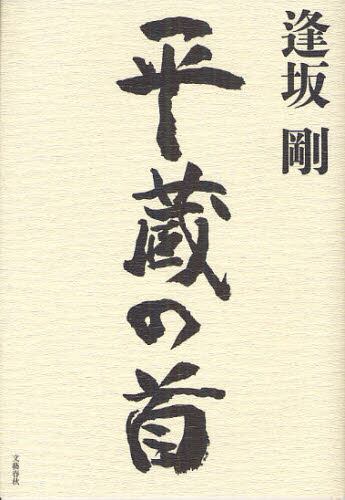 逢坂 剛
平蔵の首
文藝春秋